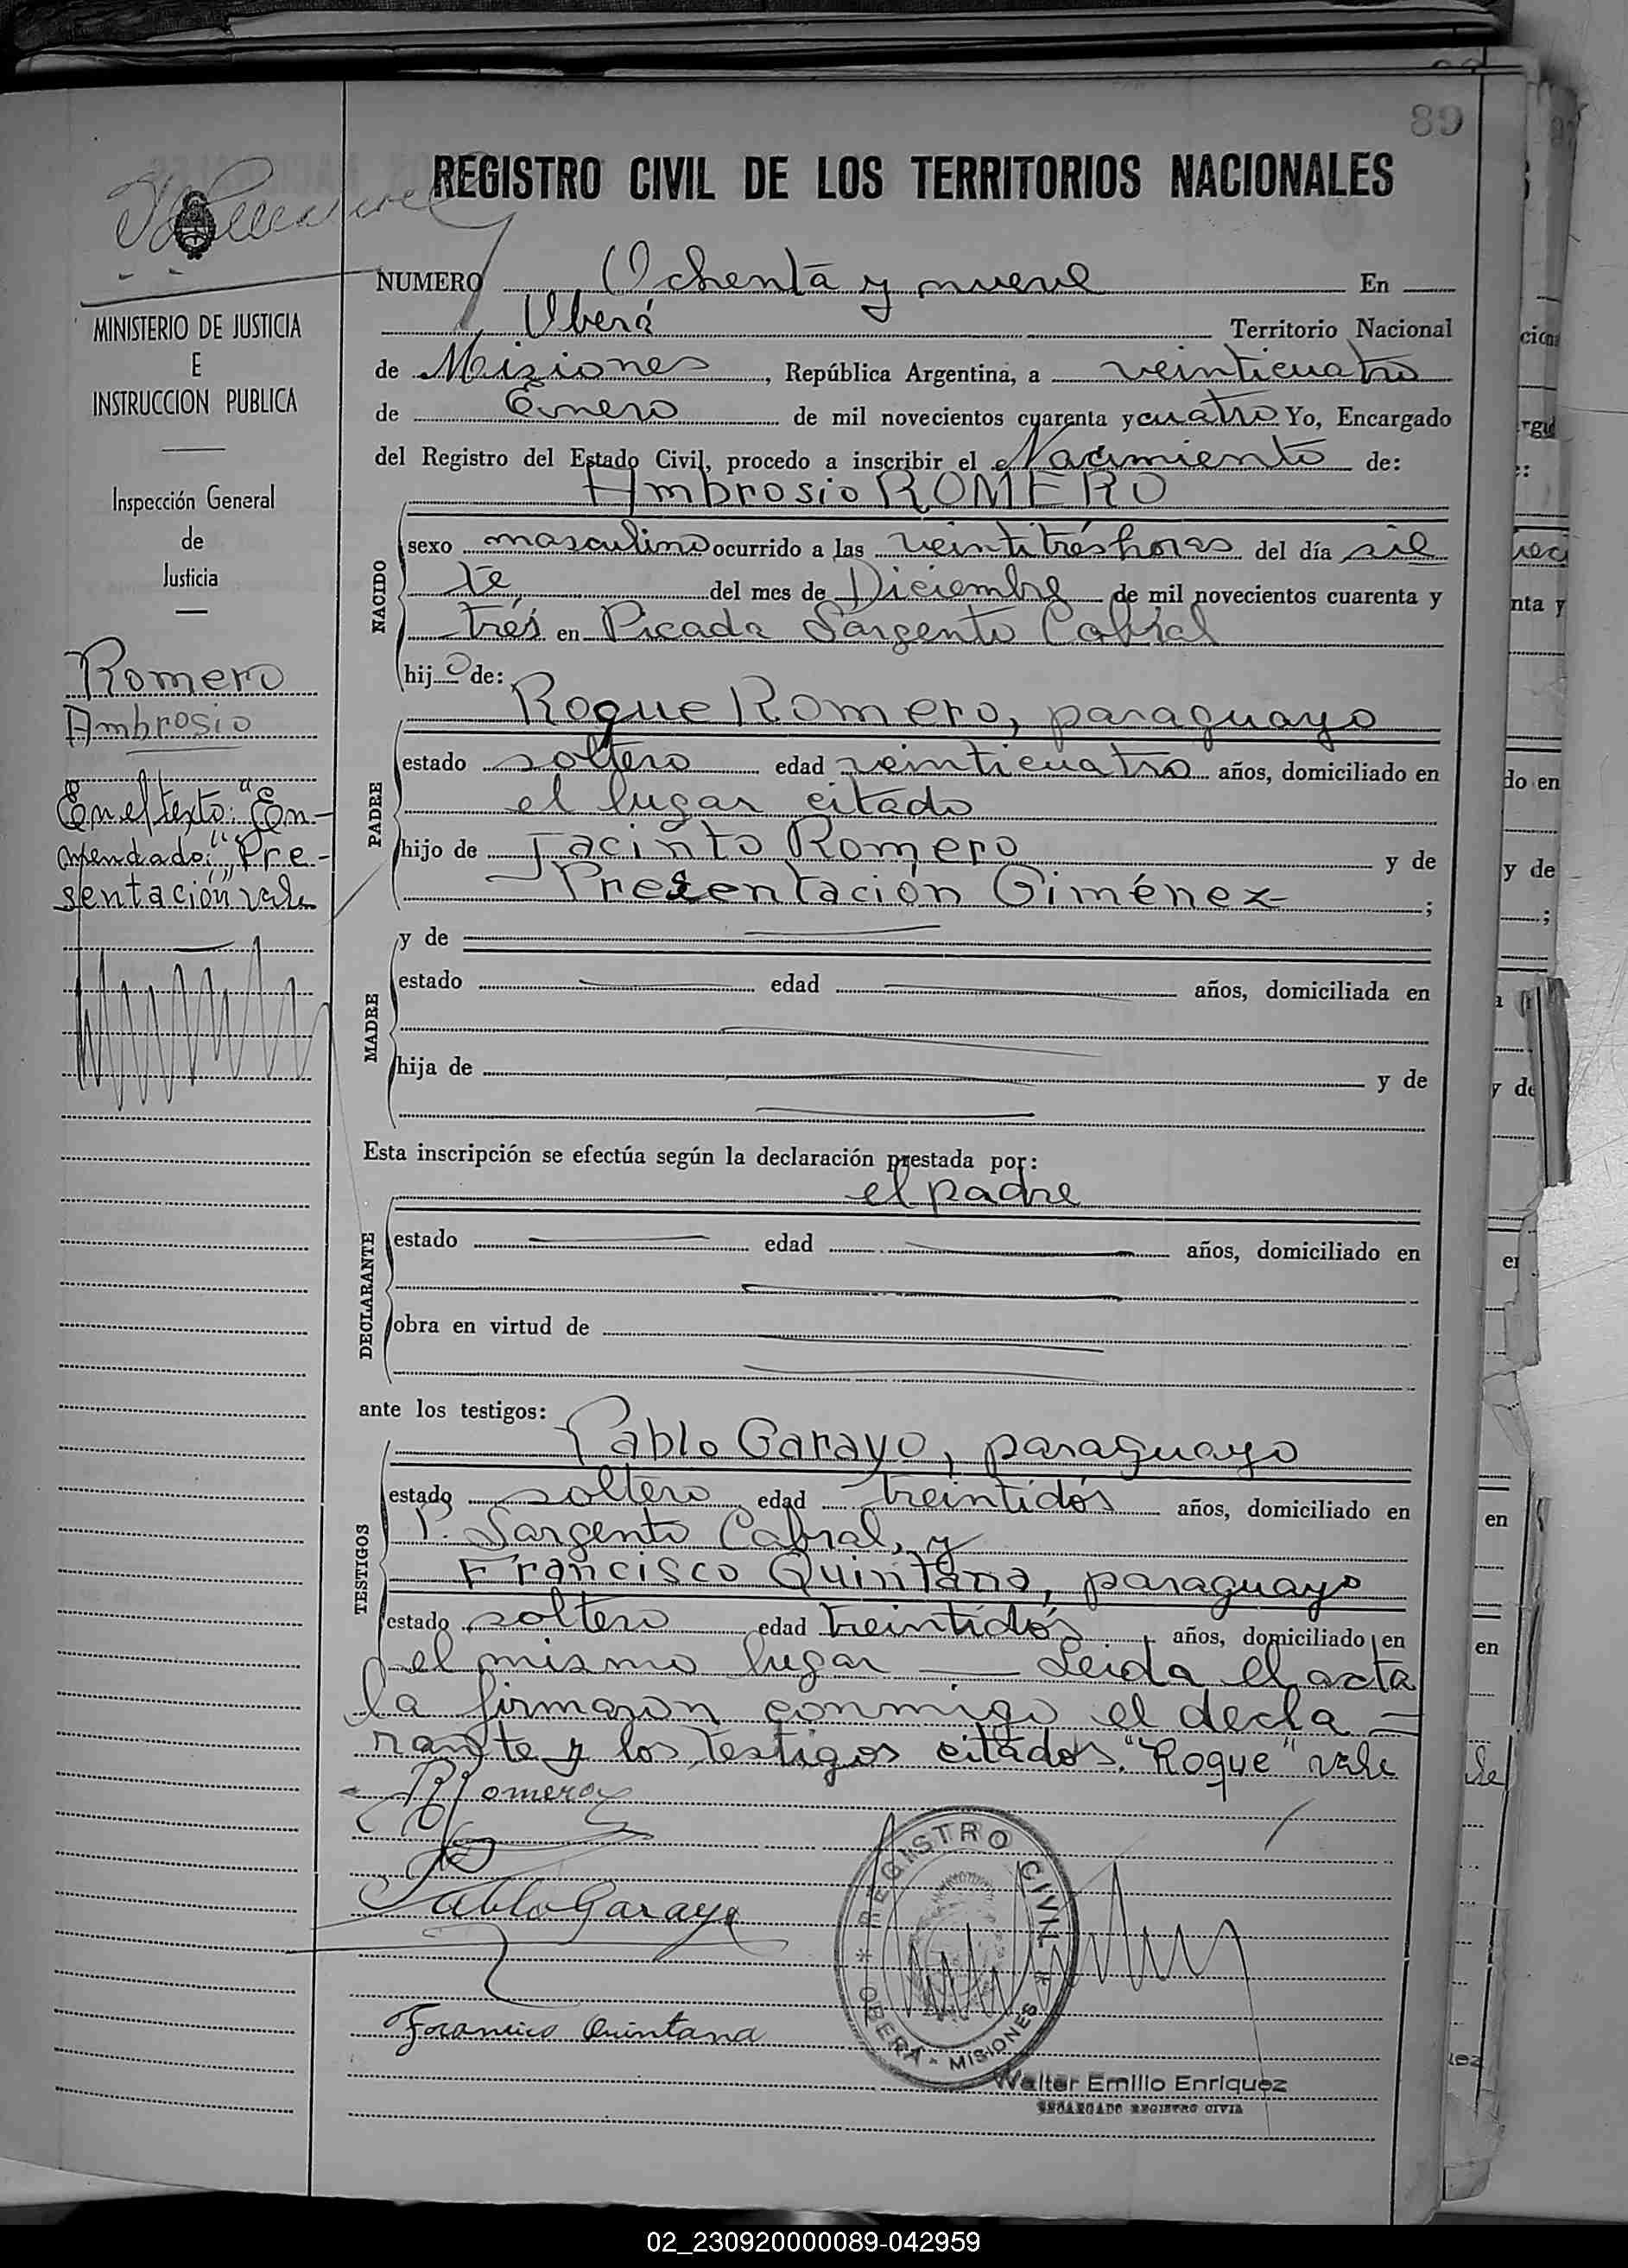 89
REGISTRO CIVIL DE LOS TERRITORIOS NACIONALES
NUMERO Ochenta y nueve En
Oberá Territorio Nacional
de Misiones, República Argentina, a veinticuatro
de Enero de mil novecientos cuarenta y cuatro Yo, Encargado
del Registro del Estado Civil, procedo a inscribir el Nacimiento de:
Ambrosio ROMERO
NACIDO
sexo masculino ocurrido a las veintitrés horas del día sie
te del mes de Diciembre de mil novecientos cuarenta y
trés en Picada Sargento Cabral
hijo de:
PADRE
Roque Romero, paraguayo
estado soltero edad veinticuatro años, domiciliado en
el lugar citado
hijo de Jacinto Romero y de
Presentación Giménez ;
MADRE
y de
estado edad años, domiciliada en
hija de y de
Esta inscripción se efectúa según la declaración prestada por:
el padre
DECLARANTE
estado edad años, domiciliado en
obra en virtud de
ante los testigos:
TESTIGOS
Pablo Garayo, paraguayo
estado soltero edad treintidós años, domiciliado en
P. Sargento Cabral, y
Francisco Quintana, paraguayo
estado soltero edad treintidós años, domiciliado en
el mismo lugar — Leida el acta
la firmaron conmigo el decla=
rante y los testigos citados. "Roque" vale
R Romero
Pablo Garayo
Francisco Quintana
REGISTRO CIVIL * OBERÁ - MISIONES *
Walter Emilio Enriquez
ENCARGADO REGISTRO CIVIL
MINISTERIO DE JUSTICIA
E
INSTRUCCION PUBLICA
Inspección General
de
Justicia
Romero
Ambrosio
En el texto: "En-
mendado: "Pre-
sentación" vale
02_230920000089-042959